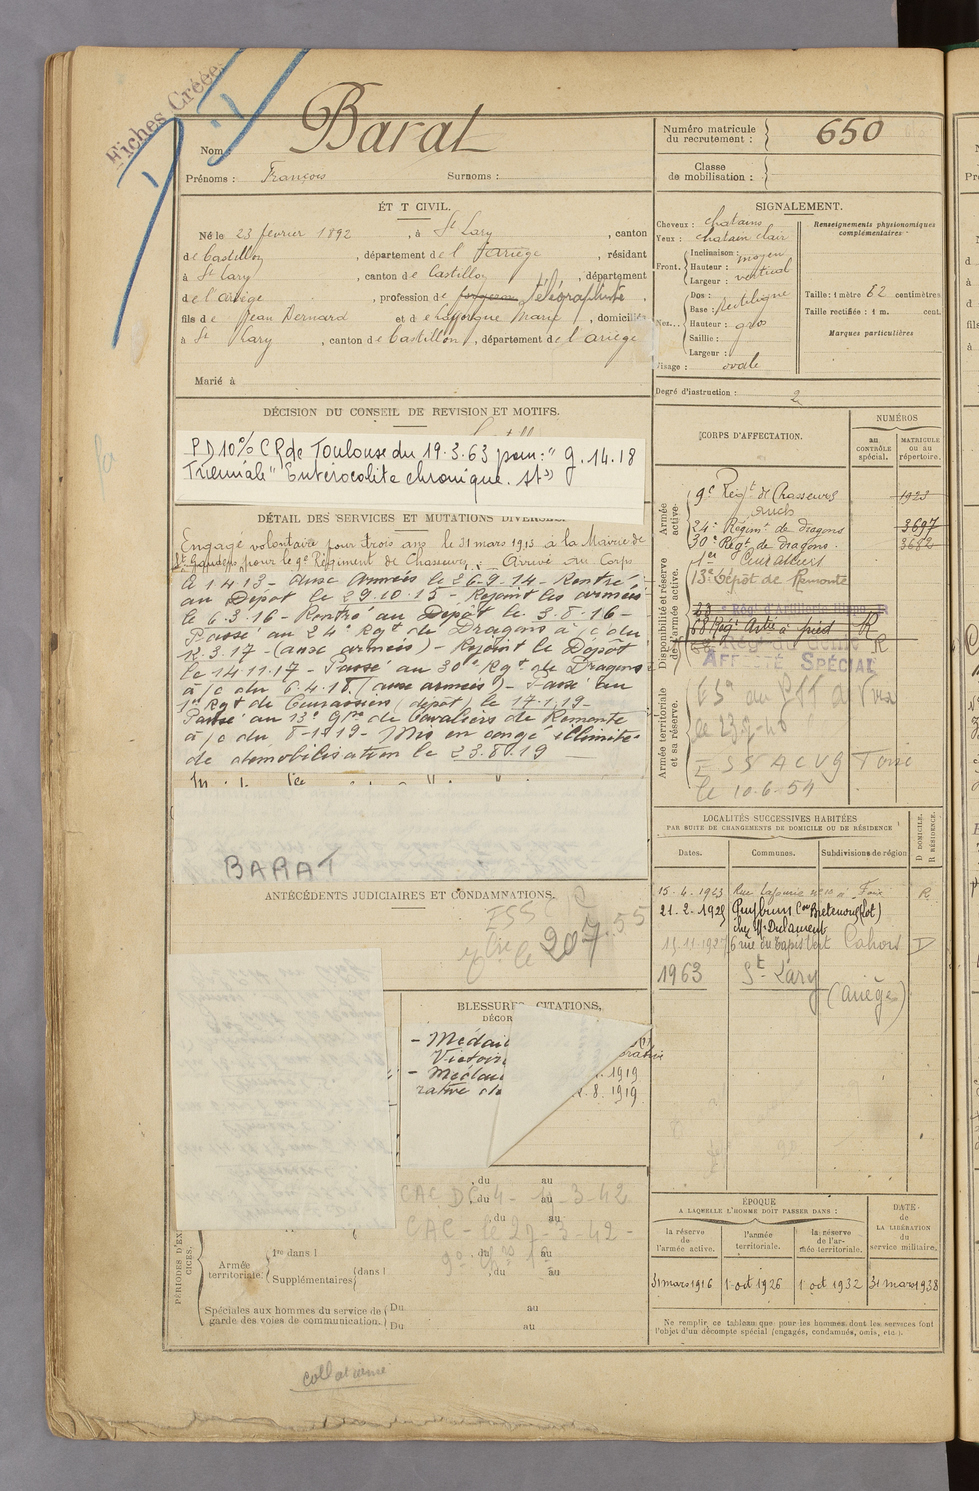 Fiches Créées
Nom : Barat
Prénoms : François Surnoms :
Numéro matricule du recrutement : 650
Classe de mobilisation :
ÉTAT CIVIL.
Né le 23 février 1892, à St Lary, canton
de Castillon, département de l'Ariège, résidant
à St Lary, canton de Castillon, département
de l'ariège, profession de forgeron télégraphiste.
fils de Jean Bernard et de Lafforgue Marie, domiciliés
à St Lary, canton de Castillon, département de l'ariège
Marié à
SIGNALEMENT.
Cheveux : chatains
Yeux : chatain clair
Front. Inclinaison : moyen
Hauteur : vertical
Largeur :
Nez... Dos : rectiligne
Base :
Hauteur : gros
Saillie :
Largeur :
Visage : ovale
Renseignements physionomiques complémentaires
Taille : 1 mètre 62 centimètres
Taille rectifiée : 1 m. cent.
Marques particulières
Degré d'instruction : 2
DÉCISION DU CONSEIL DE REVISION ET MOTIFS.
PD 10% CR de Toulouse du 19.3.63 pour : " g. 14.18
Triennale" "Entérocolite chronique. st"
DÉTAIL DES SERVICES ET MUTATIONS DIVERSES.
Engagé volontaire pour trois ans le 31 mars 1913 à la Mairie de
St Gaudens pour le 9e Régiment de Chasseurs. Arrivé au Corps
le 1.4.13 - aux Armées le 26.9.14 - Rentré
au Dépôt le 29.10.15 - Rejoint les armées
le 6.3.16 - Rentré au Dépôt le 3.8.16 -
Passé au 24e Rgt de Dragons à/c du
12.3.17 - (aux armées) - Rejoint le Dépôt
le 14.11.17 - Passé au 30e Rgt de Dragons
à/c du 6.4.18 (aux armées) - Passé au
1er Rgt de Cuirassiers (dépôt) le 17.1.19 -
Passé au 13e Gpe de Cavaliers de Remonte
à/c du 8-1-19 - Mis en congé illimité
de démobilisation le 23.8.19
BARAT
CORPS D'AFFECTATION.
NUMÉROS
au CONTRÔLE spécial.
MATRICULE ou au répertoire.
Armée active.
9e Régt de Chasseurs 1923
Auch
24e Régimt de dragons 3697
30e Régt de dragons. 3682
Disponibilité et réserve de l'armée active.
1er Cuirassiers
13e Dépôt de Remonte
68 Régt Artie à pied R
AFFECTÉ SPÉCIAL
Armée territoriale et sa réserve.
le 10-6-54
LOCALITÉS SUCCESSIVES HABITÉES
PAR SUITE DE CHANGEMENTS DE DOMICILE OU DE RÉSIDENCE
Dates. Communes. Subdivisions de région
D DOMICILE. R RÉSIDENCE.
15.6.1923 Rue Lafaurie no 10 à Foix R
21-2-1925 Puybrun Con Bretenoux (Lot)
chez Mr Dulaurent
6 rue du Tapis Vert Cahors D
1963 St-Lary
(Ariège)
ANTÉCÉDENTS JUDICIAIRES ET CONDAMNATIONS.
BLESSURES, CITATIONS,
DÉCOR
- Médail
Victoire
- Médail 1919
8. 1919
PÉRIODES D'EXERCICES.
, du au
CAC DC 4 - 1-3-42
CAC - le 27-3-42 -
Armée territoriale :
1re dans l , du au
Supplémentaires dans l , du au
Spéciales aux hommes du service de garde des voies de communication.
Du au
Du au
ÉPOQUE
A LAQUELLE L'HOMME DOIT PASSER DANS :
la réserve de l'armée active.
l'armée territoriale.
la réserve de l'armée territoriale.
DATE de LA LIBÉRATION du service militaire.
31 mars 1916 1 oct 1926 1 oct 1932 31 mars 1938
Ne remplir ce tableau que pour les hommes dont les services font
l'objet d'un décompte spécial (engagés, condamnés, omis, etc.).